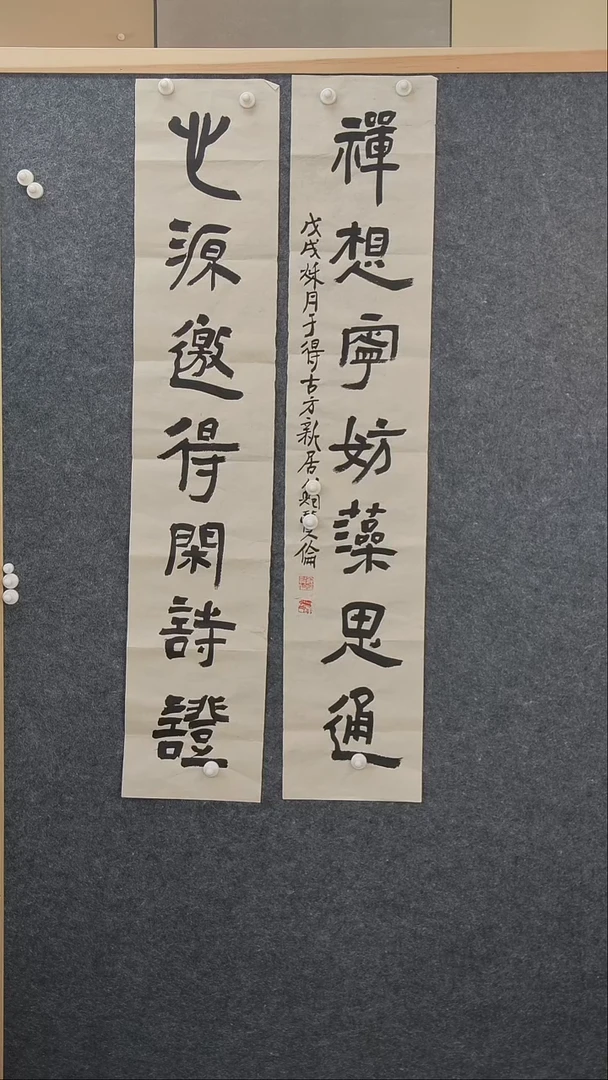 禪想寧妨藻思通
戊戌秋月于得古方新居
倫
心源邀得閑詩證